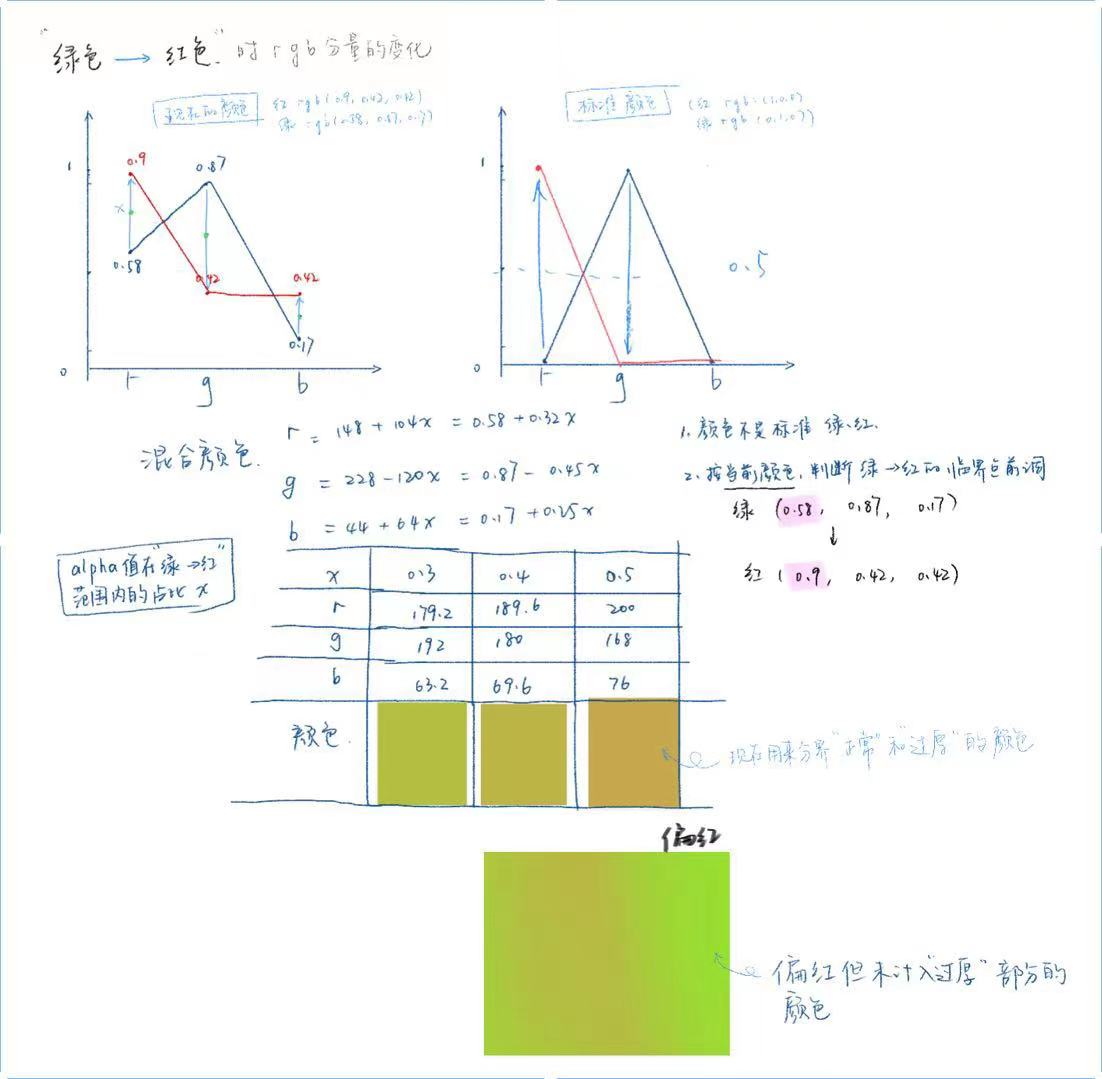 "绿色 → 红色" 时 rgb 分量的变化
现在的颜色 红 rgb (0.9, 0.42, 0.42)
绿 rgb (0.58, 0.87, 0.17)
标准颜色 (红 rgb: (1,0,0)
绿 rgb (0,1,0))
1
0.9
0.87
x
0.58
0.42
0.42
0.17
0
r g b
1
0.5
0
r g b
混合颜色.
r = 148 + 104x = 0.58 + 0.32x
g = 228 - 120x = 0.87 - 0.45x
b = 44 + 64x = 0.17 + 0.25x
1. 颜色不是标准 绿、红.
2. 按当前颜色, 判断 绿→红的 临界点前调
绿 (0.58, 0.87, 0.17)
↓
红 (0.9, 0.42, 0.42)
alpha 值在"绿→红"
范围内的占比 x
x 0.3 0.4 0.5
r 179.2 189.6 200
g 192 180 168
b 63.2 69.6 76
颜色.
现在用来分界"正常"和"过厚"的颜色
偏红
偏红但未计入"过厚"部分的
颜色